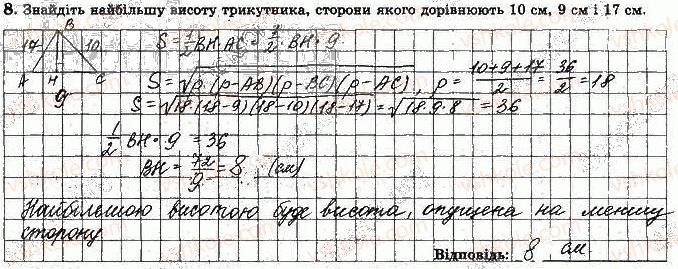 8. Знайдіть найбільшу висоту трикутника, сторони якого дорівнюють 10 см, 9 см і 17 см.
B
17 10
A H C
9
S = 1/2 BH · AC = 1/2 · BH · 9
S = √p · (p-AB)(p-BC)(p-AC), p = (10+9+17)/2 = 36/2 = 18
S = √18 · (18-9)(18-10)(18-17) = √18 · 9 · 8 = 36
1/2 BH · 9 = 36
BH = 72/9 = 8 (см)
Найбільшою висотою буде висота, опущена на меншу
сторону
Відповідь: 8 см.